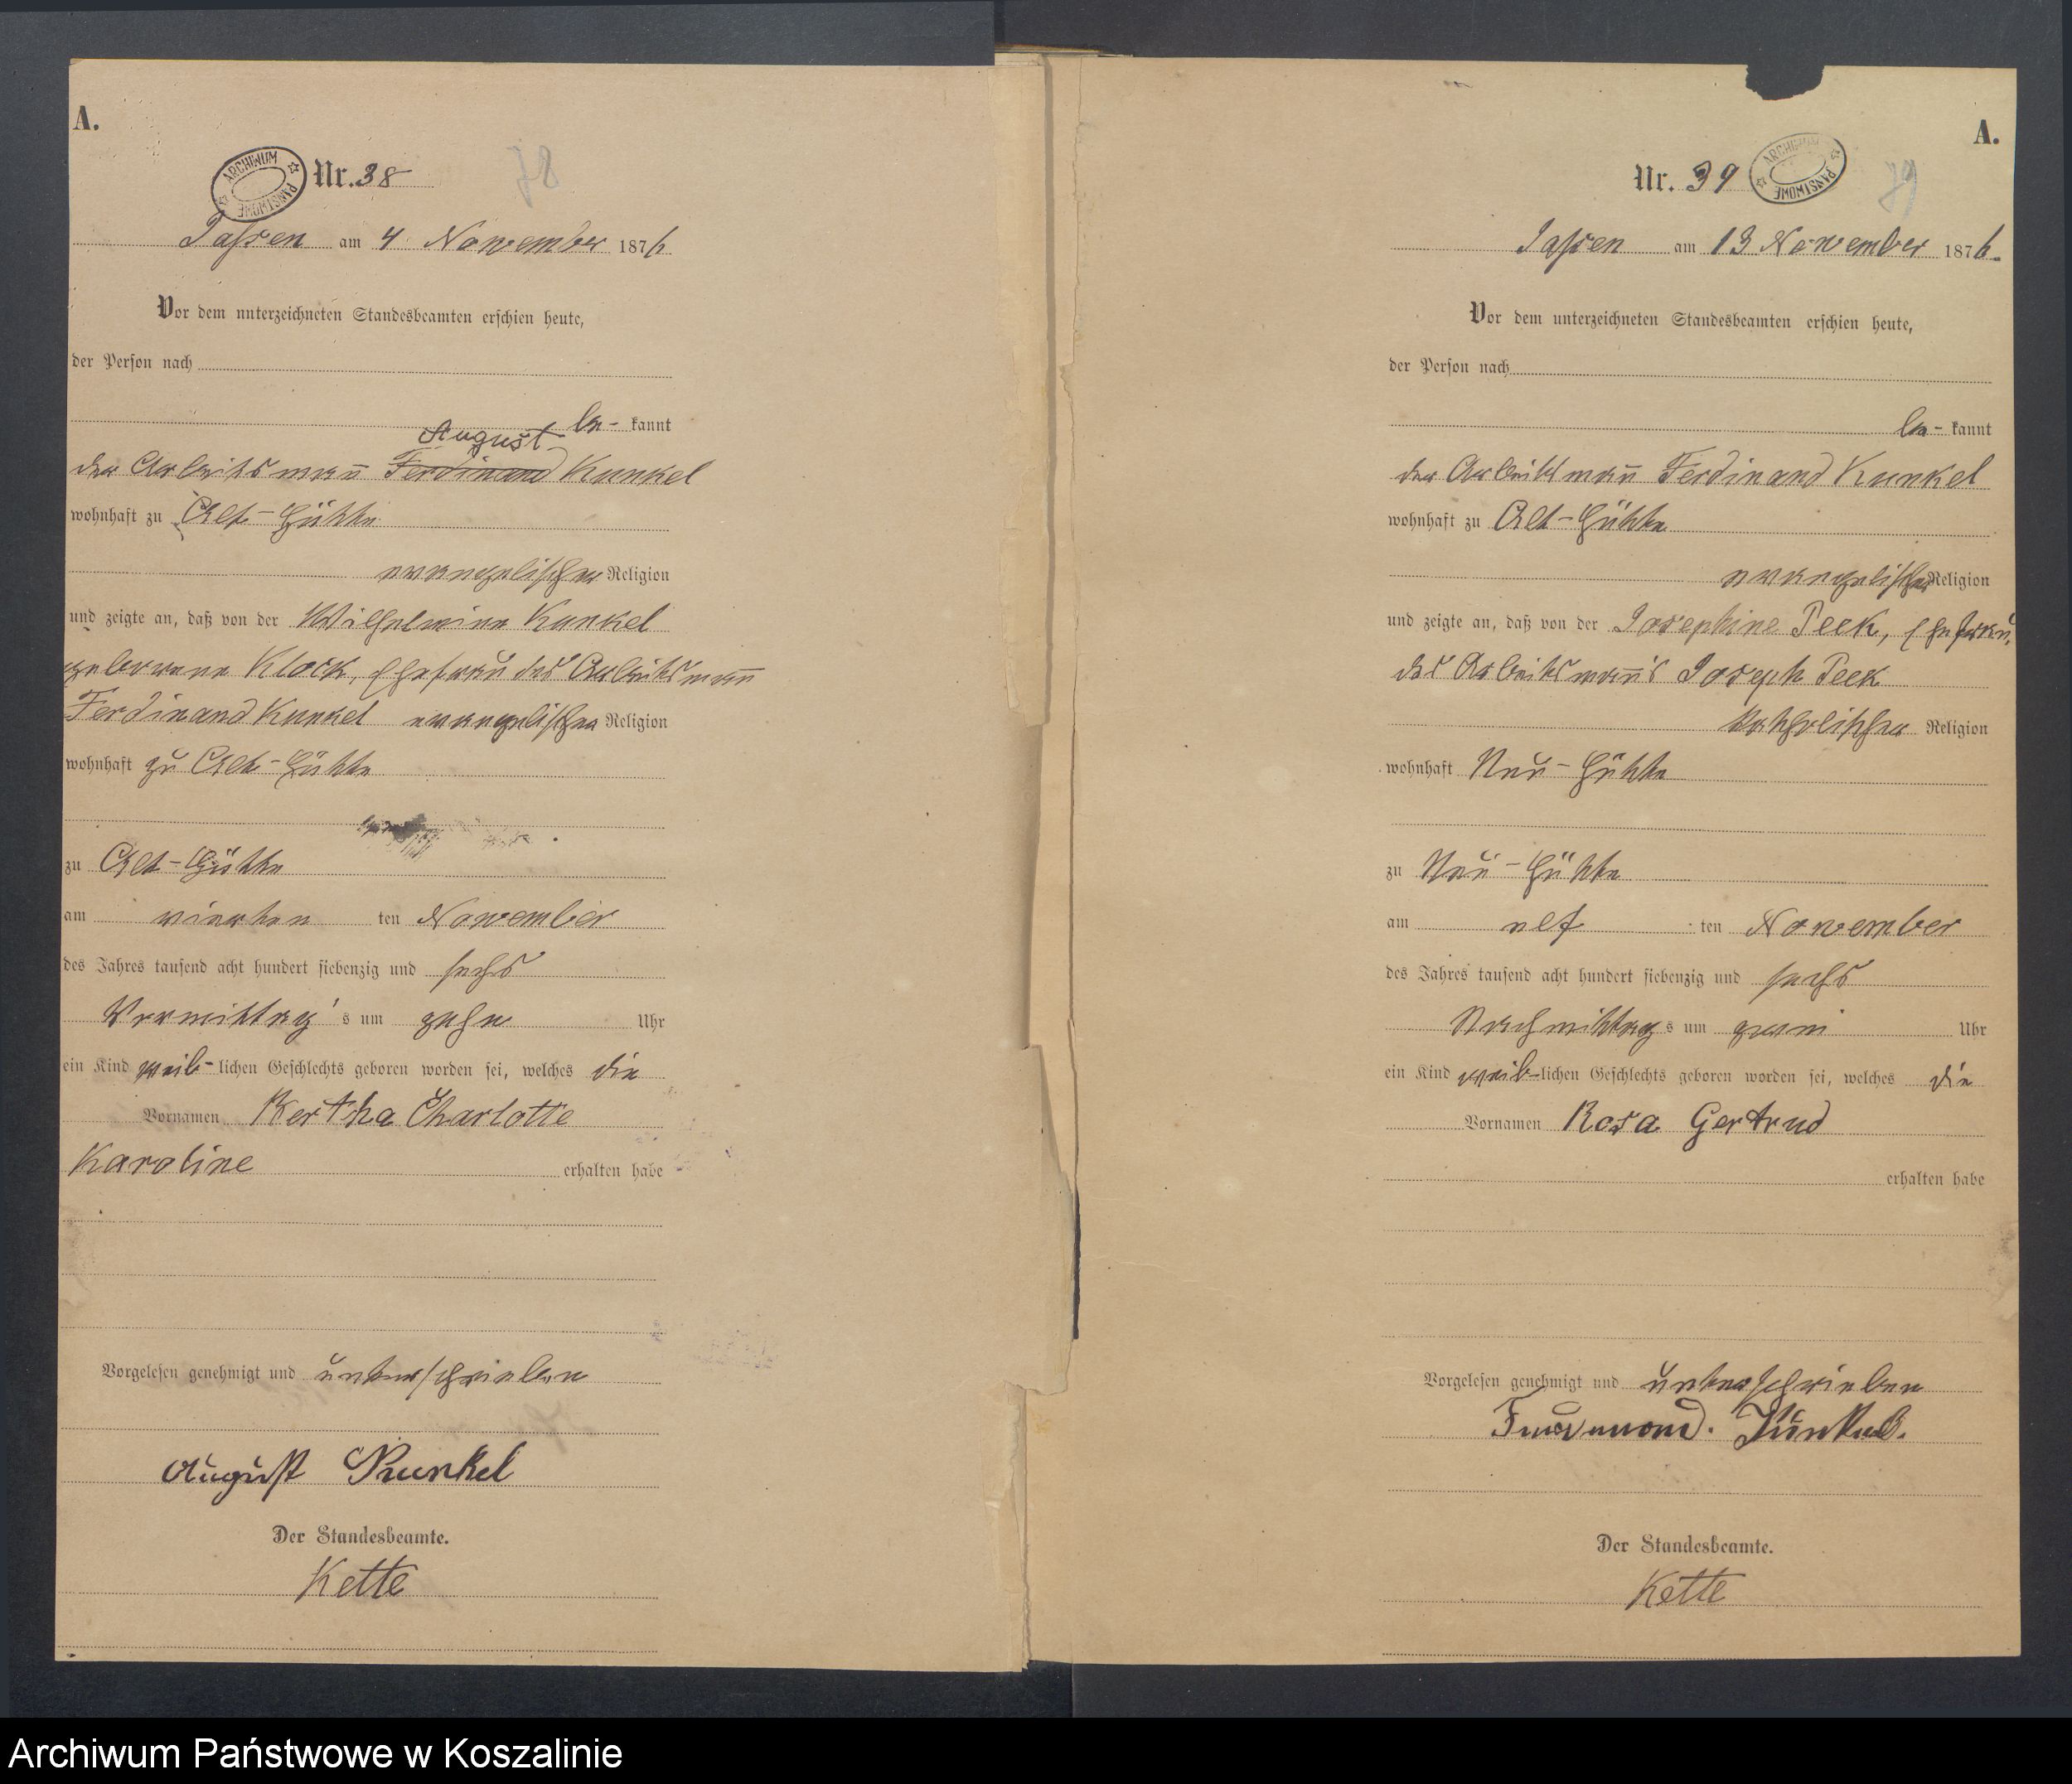 A.
ARCHIWUM PAŃSTWOWE
Nr. 38
Jassen am 4 November 1876.
Vor dem unterzeichneten Standesbeamten erschien heute,
der Person nach
be- kannt
August
der Arbeitsmann Ferdinand Kunkel
wohnhaft zu Alt-Hütte
evangelischer Religion
und zeigte an, daß von der Wilhelmine Kunkel
geborene Klock, Ehefrau des Arbeitsmann
Ferdinand Kunkel evangelischer Religion
wohnhaft zu Alt-Hütte
zu Alt-Hütte
am vierten ten November
des Jahres tausend acht hundert siebenzig und sechs
Vormittag's um zehn Uhr
ein Kind weib- lichen Geschlechts geboren worden sei, welches die
Vornamen Bertha Charlotte
Karoline erhalten habe
Vorgelesen genehmigt und unterschrieben
August Kunkel
Der Standesbeamte.
Kette
A.
Nr. 39
ARCHIWUM PAŃSTWOWE
39
Jassen am 13 November 1876.
Vor dem unterzeichneten Standesbeamten erschien heute,
der Person nach
be- kannt
der Arbeitsmann Ferdinand Kunkel
wohnhaft zu Alt-Hütte
evangelischer Religion
und zeigte an, daß von der Josephine Peek, Ehefrau,
des Arbeitsmann's Joseph Peek
katholischer Religion
wohnhaft Neu-Hütte
zu Neu-Hütte
am elf ten November
des Jahres tausend acht hundert siebenzig und sechs
Nachmittags um zwei Uhr
ein Kind weib-lichen Geschlechts geboren worden sei, welches die
Vornamen Rosa Gertrud
erhalten habe
Vorgelesen genehmigt und unterschrieben
Kunkel.
Der Standesbeamte.
Kette
Archiwum Państwowe w Koszalinie